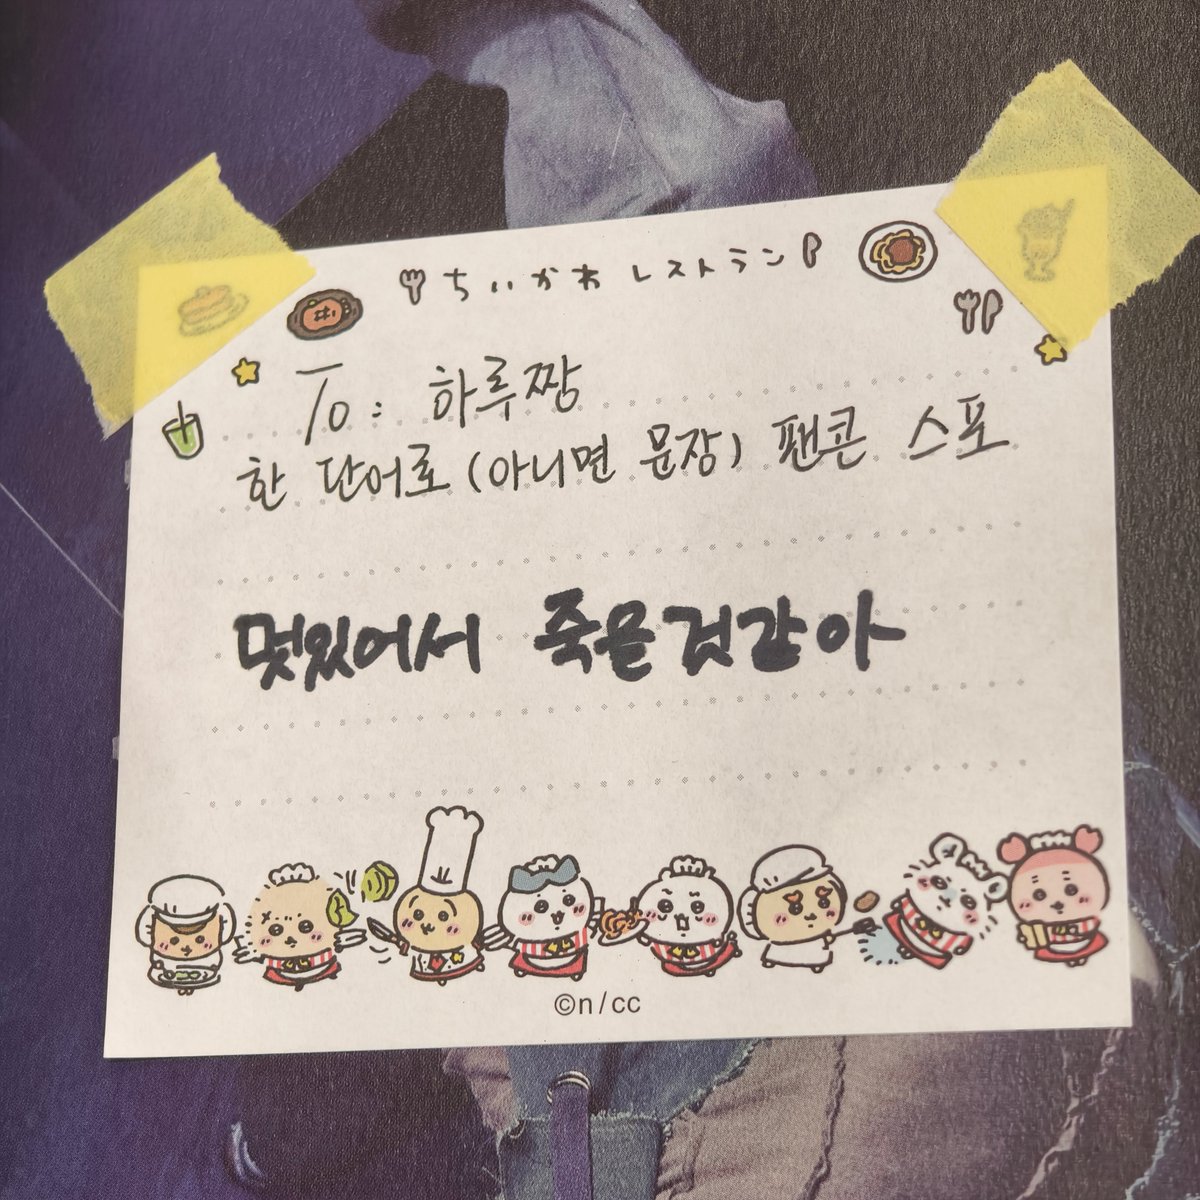 ちいかわレストラン
To: 하루짱
한 단어로 (아니면 문장) 팬콘 스포
멋있어서 죽을것같아
©n/cc